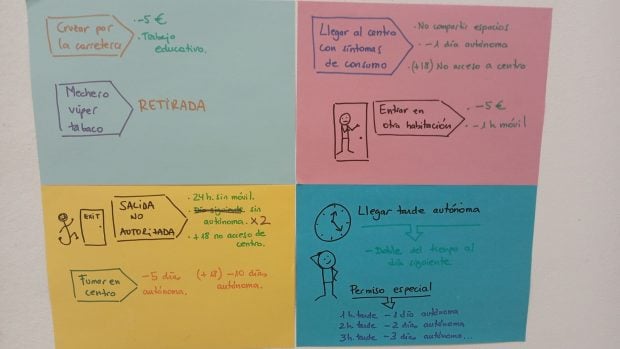 Cruzar por
la carretera
· -5 €
· Trabajo
educativo.
Mechero
vúper
tabaco
RETIRADA
Llegar al centro
con síntomas
de consumo
· No compartir espacios
· -1 día autónoma
· (+18) No acceso a centro
Entrar en
otra habitación
· -5 €
· -1h móvil
EXIT
SALIDA
NO
AUTORIZADA
· 24h. sin móvil.
· Día siguiente sin
autónoma. x2
· +18 no acceso de
centro.
Fumar en
centro
-5 días
autónoma.
(+18) -10 días
autónoma.
Llegar tarde autónoma
- Doble del tiempo al
día siguiente
Permiso especial
1h tarde - 1 día autónoma
2h tarde - 2 días autónoma
3h tarde - 3 días autónoma...